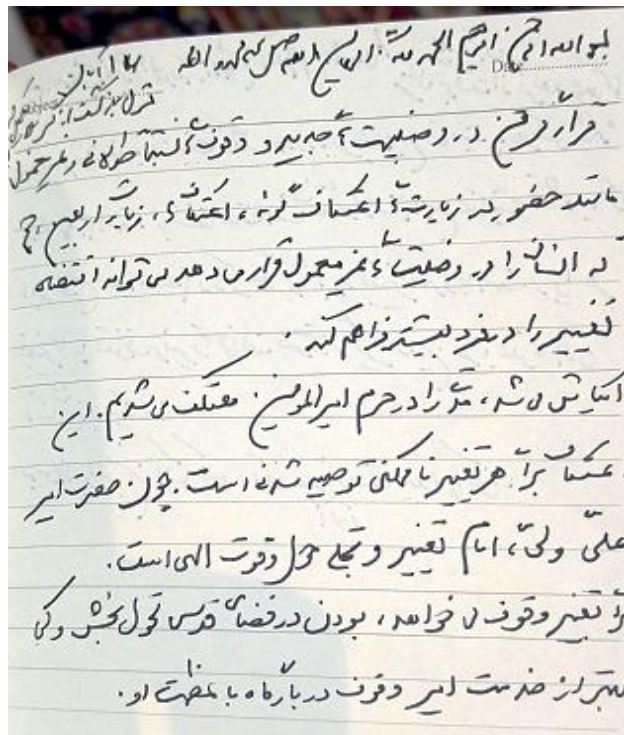 بسم الله الرحمن الرحیم الحمد لله رب العالمین اللهم صل علی محمد و آله
۱۶ آبان
قبل بازگشت از
قرار گرفتن در وضعیت‌های جدید و وقوف‌های نسبتاً طولانی و غیر معمول
مانند حضور در زیارت‌های اعتکاف گونه، اعتکاف‌ها، زیارت اربعین، حج
که انسان را در وضعیت‌های غیر معمول قرار می‌دهد می‌تواند اقتضاء
تغییر را در فرد بیشتر فراهم کند.
می‌شد، مدتی را در حرم امیرالمومنین معتکف می‌شدیم. این
برای هر تغییر ناممکنی توصیه شدنی است. چون حضرت امیر
علیّ ولیّ، امام تغییر و تجلی حول و قوت الهی است.
تغییر وقوف می‌خواهد، بودن در فضای قدسی تحول بخش و
بهتر از خدمت امیر و وقوف در بارگاه با عظمت او.